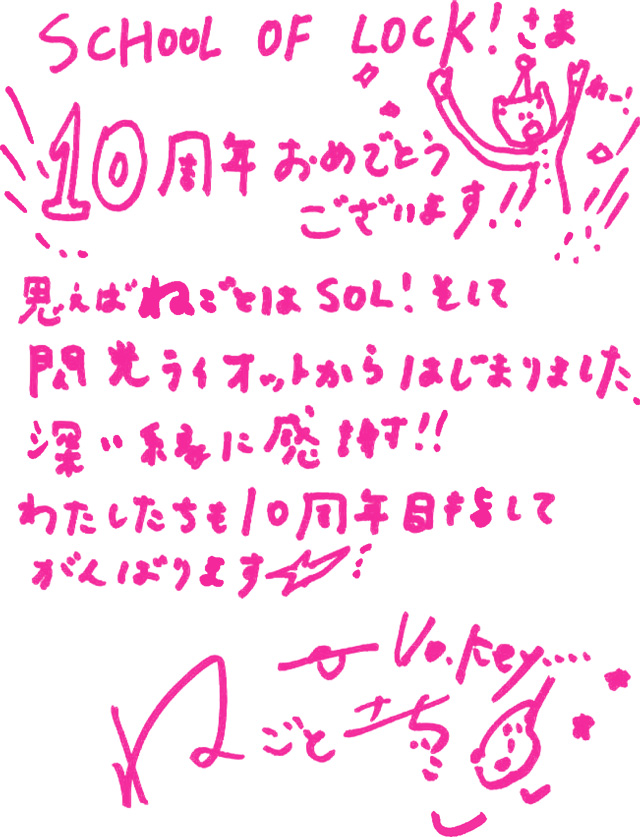 SCHOOL OF LOCK!さま
わー!
10周年おめでとう
ございます!!
思えばねごとはSOL!そして
閃光ライオットからはじまりました
深い縁に感謝!!
わたしたちも10周年目指して
がんばります
Vo.Key....
ねごと